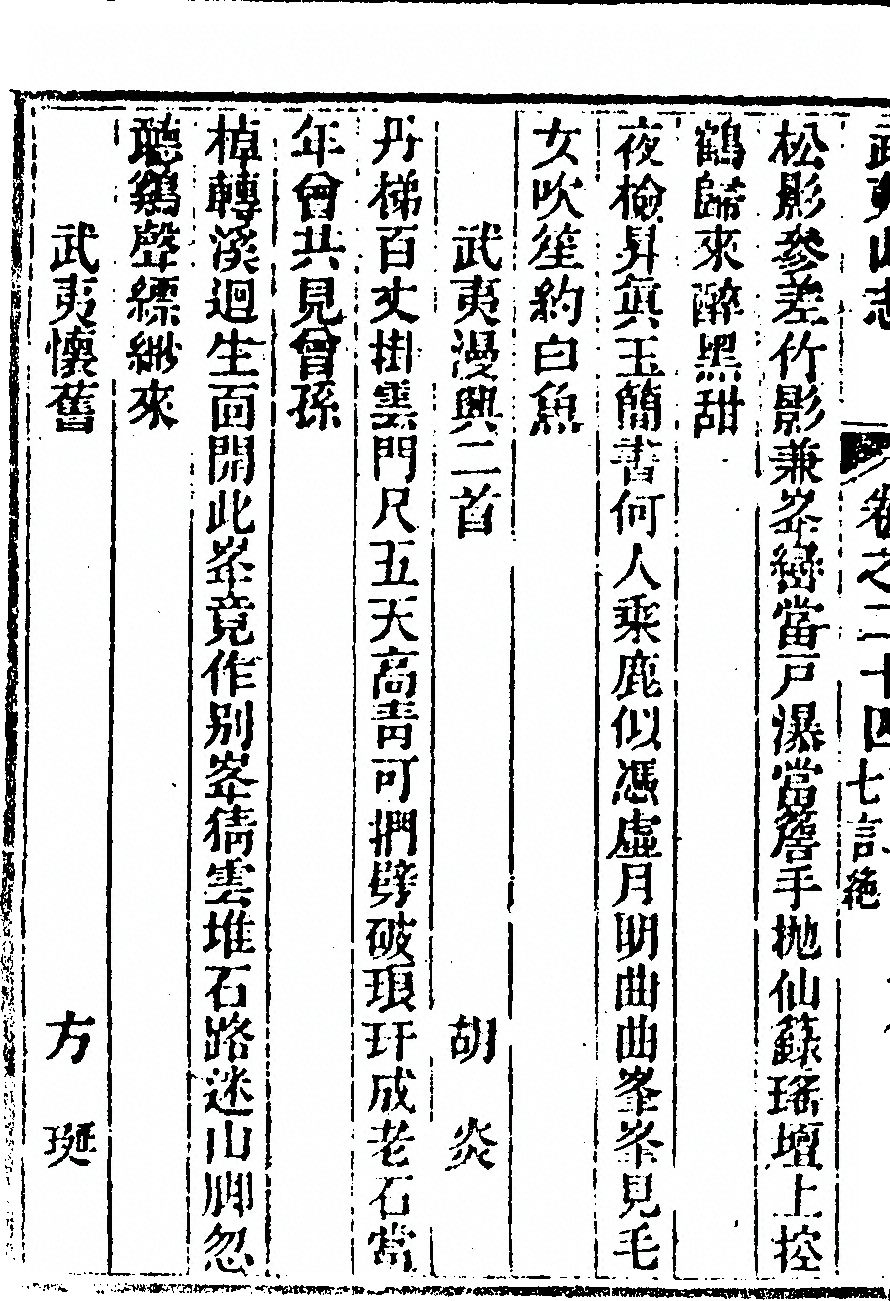 武夷山志 卷之二十四七言絶
松影參差竹影兼峯巒當戸瀑當簷手抛仙籙瑤壇上控
鶴歸來醉黑甜
夜檢昇眞玉簡書何人乘鹿似馮虛月明曲曲峯峯見毛
女吹笙約白魚
武夷漫興二首 胡炎
丹梯百丈掛雲門尺五天高靑可捫劈破琅玕成老石當
年曾共見曾孫
棹轉溪迴生面開此峯竟作别峯猜雲堆石路迷山脚忽
聽鷄聲縹緲來
武夷懷舊 方珽